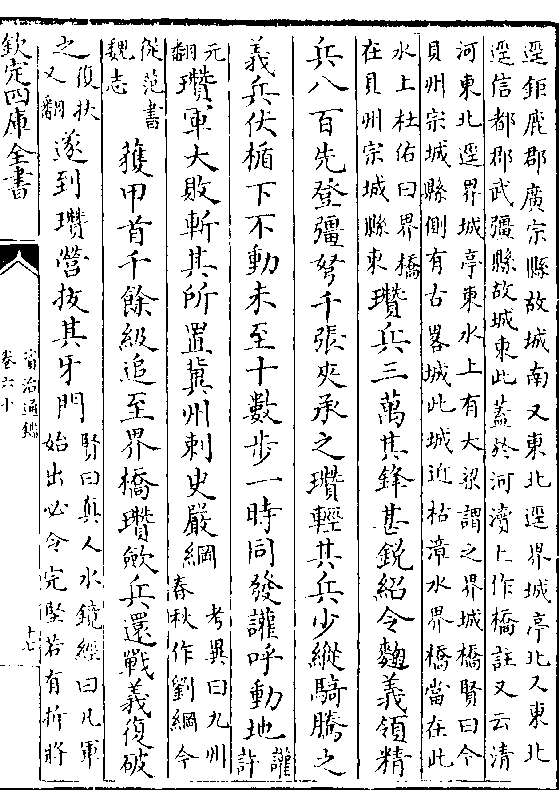 逕鉅鹿郡廣宗縣故城南又東北逕界城亭北又東北
逕信都郡武彊縣故城東此蓋於河濟上作橋註又云清
河東北逕界城亭東水上有大梁謂之界城橋賢曰今
貝州宗城縣側有古畧城此城近枯漳水界橋當在此
水上杜佑曰界橋
在貝州宗城縣東
瓚兵三萬其鋒甚銳紹令麴義領精
兵八百先登彊弩千張夾承之瓚輕其兵少縱騎騰之
義兵伏楯下不動未至十數步一時同發讙呼動地
讙
許
元
翻
瓚軍大敗斬其所置冀州刺史嚴綱
考異曰九州
春秋作劉綱今
從范書
魏志
獲甲首千餘級追至界橋瓚斂兵還戰義復破
之
復扶
又翻
遂到瓚營拔其牙門
賢曰真人水鏡經曰凡軍
始出必令完堅若有折將
欽定四庫全書
資治通鑑
卷六十
十七